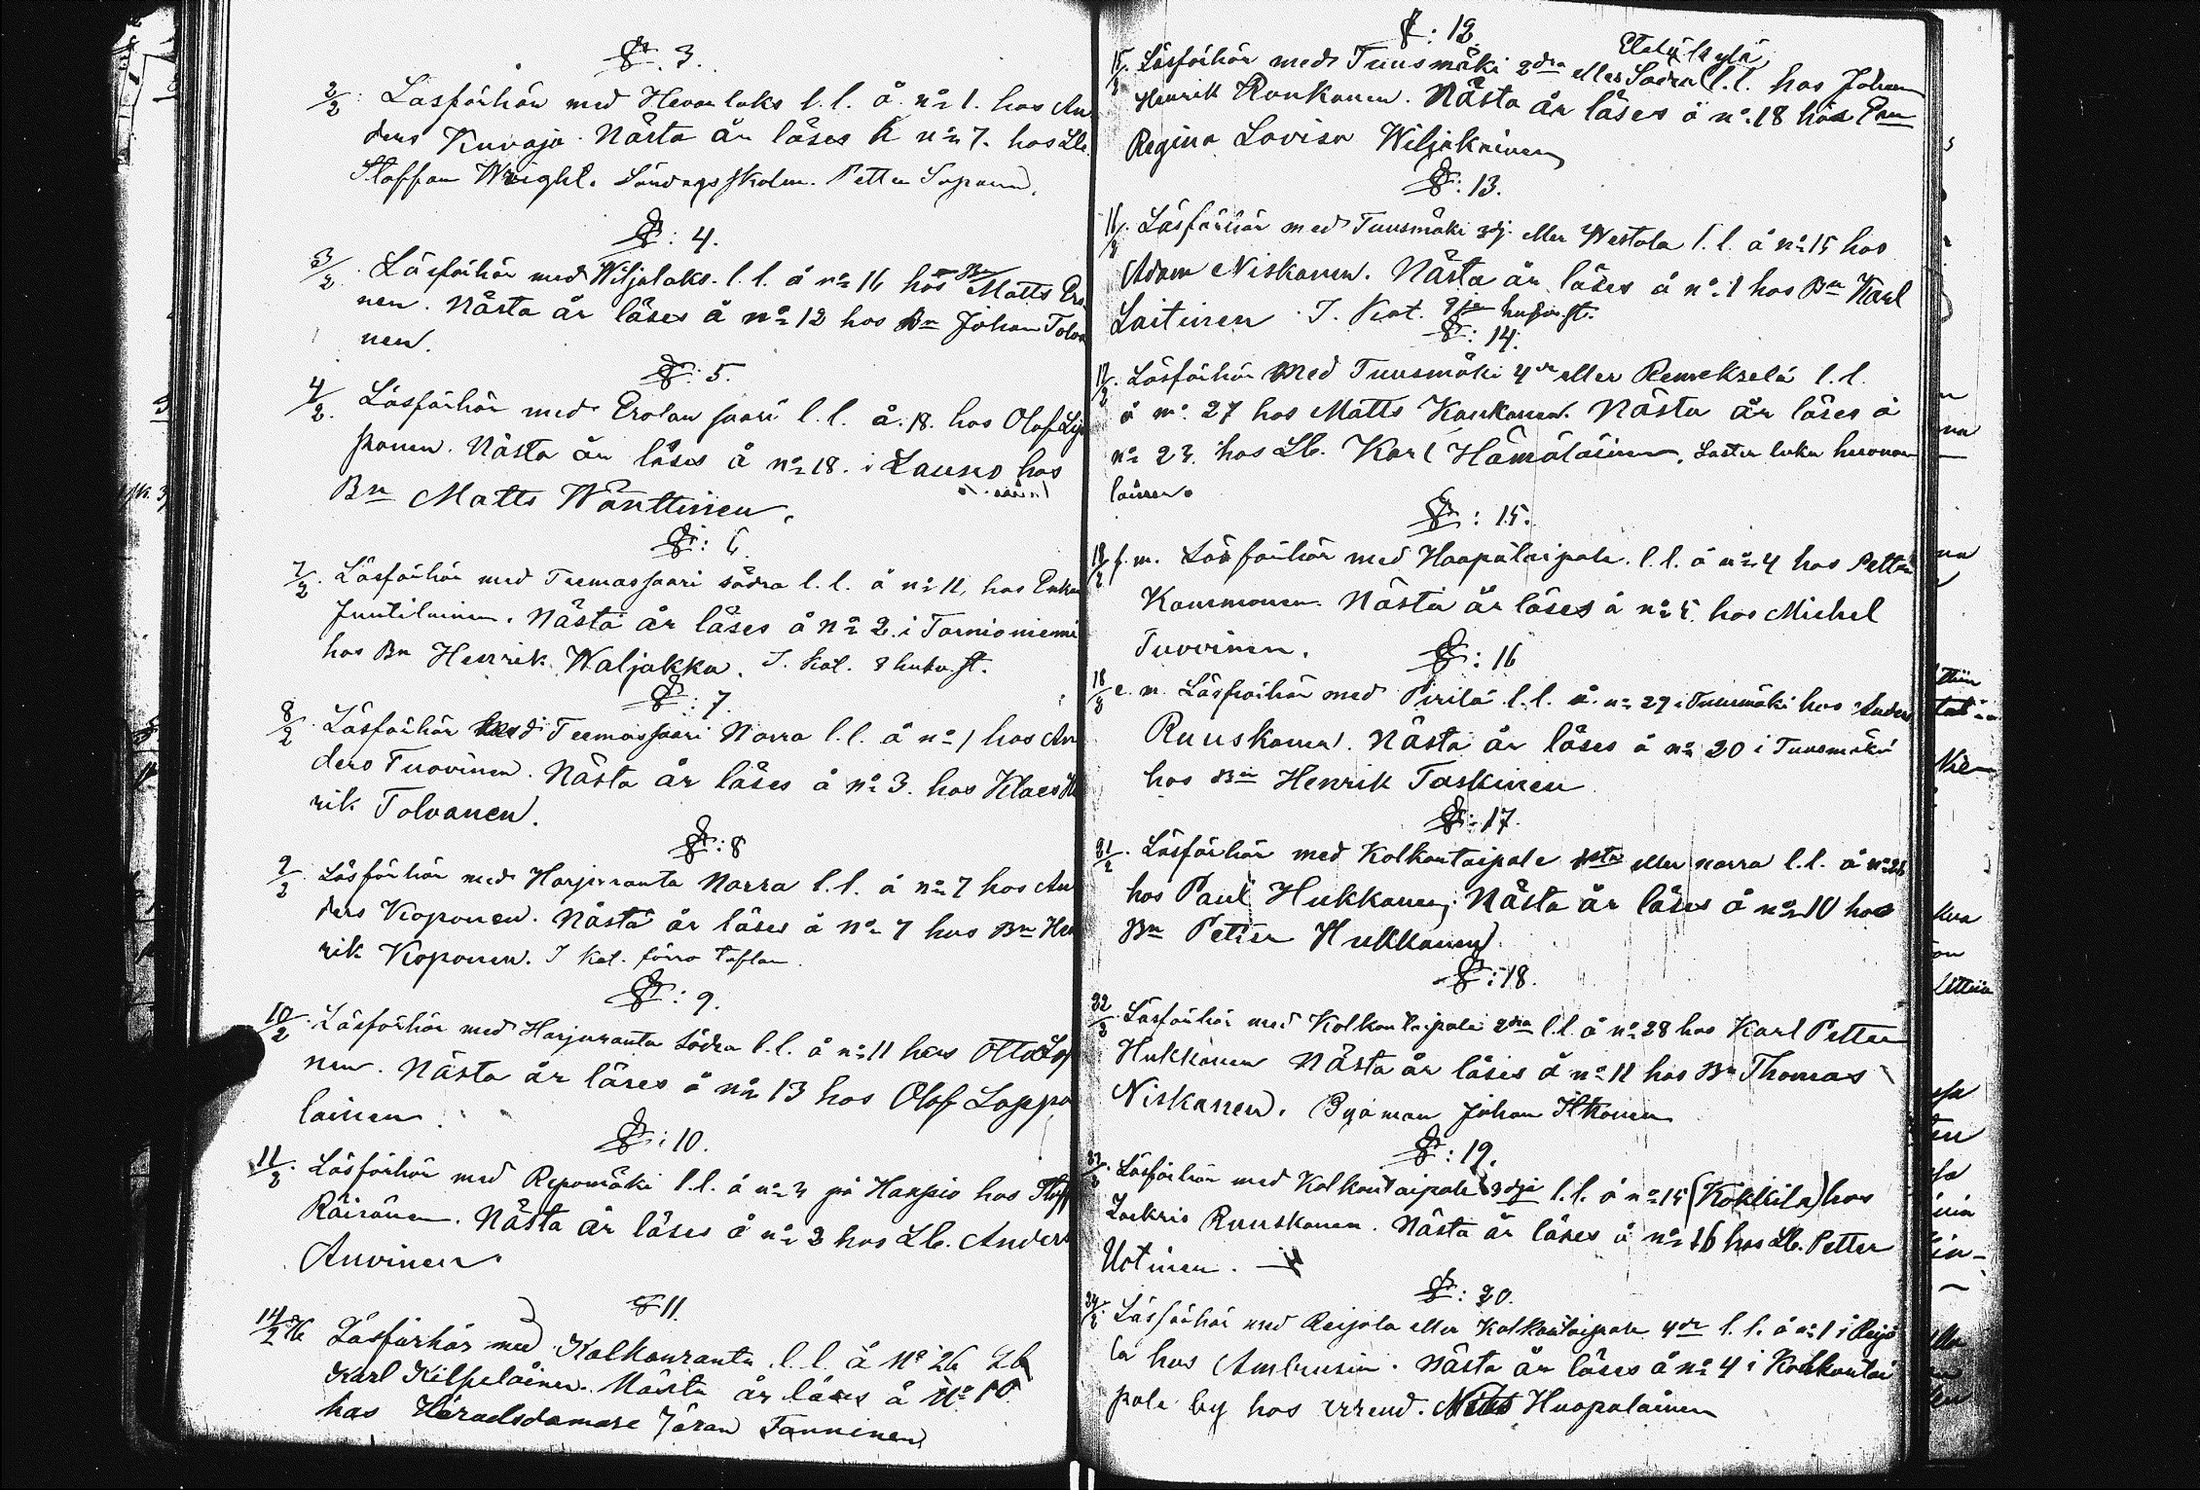 §. 3.
2/2. Läsförhör med Hevonlaks l.l. å no 1. hos An
ders Kuvaja. Nästa år läses å no 7. hos Lb.
Staffan Wright. Söndagsskolm. Petter Soponen.
§: 4.
3/2. Läsförhör med Wiljolaks. l.l. å no 16 hos Bn Matts Ero
nen. Nästa år läses å no 12 hos Bn Johan Tolva
nen.
§: 5.
4/2. Läsförhör med Erolansaari l.l. å. 18. hos Olof Lyy
ponen. Nästa år läses å no 18. i hos
Bn Matts Wänttinen.
§: 6.
7/2. Läsförhör med Teemassaari södra l.l. å no 11, hos
Juutilainen. Nästa år läses å no 2. i Tornioniemi
hos Bn Henrik Waljakka. I. kat. 8 hufv.st.
§: 7.
8/2. Läsförhör med Teemassaari Norra l.l. å no 1 hos An
ders Tuovinen. Nästa år läses å no 3. hos Klaes He
rik Tolvanen.
§: 8
9/2. Läsförhör med Harjuranta Norra l.l. å no 7 hos An
ders Koponen. Nästa år läses å no 7 hos Bn Hen
rik Koponen. I kat. förra taflan
§: 9.
10/2. Läsförhör med Harjuranta Södra l.l. å no 11 hos Otto
nen. Nästa år läses å no 13 hos Olof Lappa
lainen.
§: 10.
11/2. Läsförhör med Repomäki l.l. å no 3 på Hanpio hos Staff
Räisänen. Nästa år läses å no 2 hos Lb. Anders
Auvinen
§ 11.
14/2 76 Läsförhör med Kolkonranta l.l. å No 26 Lb
Karl Kilpeläinen. Nästa år läses å No 10
hos Häradsdomare Jöran Tanninen
§: 12.
Etelä kylä
15/2. Läsförhör med Tuusmäki 2dra eller Södra l.l. hos Johan
Henrik Ronkanen. Nästa år läses å no 18 hos Enn
Regina Lovisa Wiljakainen
§: 13.
16/2. Läsförhör med Tuusmäki 3dj. eller Westola l.l. å no 15 hos
Adam Niskanen. Nästa år läses å no 1 hos Bn Karl
Laitinen. I. Kat. hufv.st.
§: 14.
17/2. Läsförhör Med Tuusmäki 4de eller Remekselä l.l.
å no. 27 hos Matts Kaukanen. Nästa år läses å
no 23. hos Lb. Karl Hämäläinen.
lainen.
§: 15.
18/2 f.m. Läsförhör med Haapataipale. l.l. å no 4 hos Petter
Kaunonen. Nästa år läses å no 5. hos Michel
Tuovinen.
§: 16
18/2 e.m. Läsförhör med Pirilä l.l. å. no 29 i Tuusmäki hos Anders
Ruuskanen. Nästa år läses å no 20 i Tuusmäki
hos Bn Henrik Taskinen
§: 17.
21/2. Läsförhör med Kolkontaipale 1sta eller norra l.l. å no 26
hos Paul Hukkanen. Nästa år läses å no 10 hos
Bn Petter Hukkanen.
§: 18.
22/2. Läsförhör med Kolkontaipale 2dra l.l. å no 28 hos Karl Petter
Hukkanen Nästa år läses å no 11 hos Bn Thomas
Niskanen. Byåman Johan Itkonen
§: 19.
23/2. Läsförhör med Kolkontaipale 3dje l.l. å no 15 (Kokkila) hos
Zackris Ruuskanen. Nästa år läses å no 16 hos Lb. Petter
Uotinen.
§: 20.
24/2. Läsförhör med Reijola eller Kolkontaipale 4de l.l. å no 1 i Reijo
la hos Ambrusin. Nästa år läses å no 4 i Kolkontai
pale by hos arrend. Nils Huopalainen